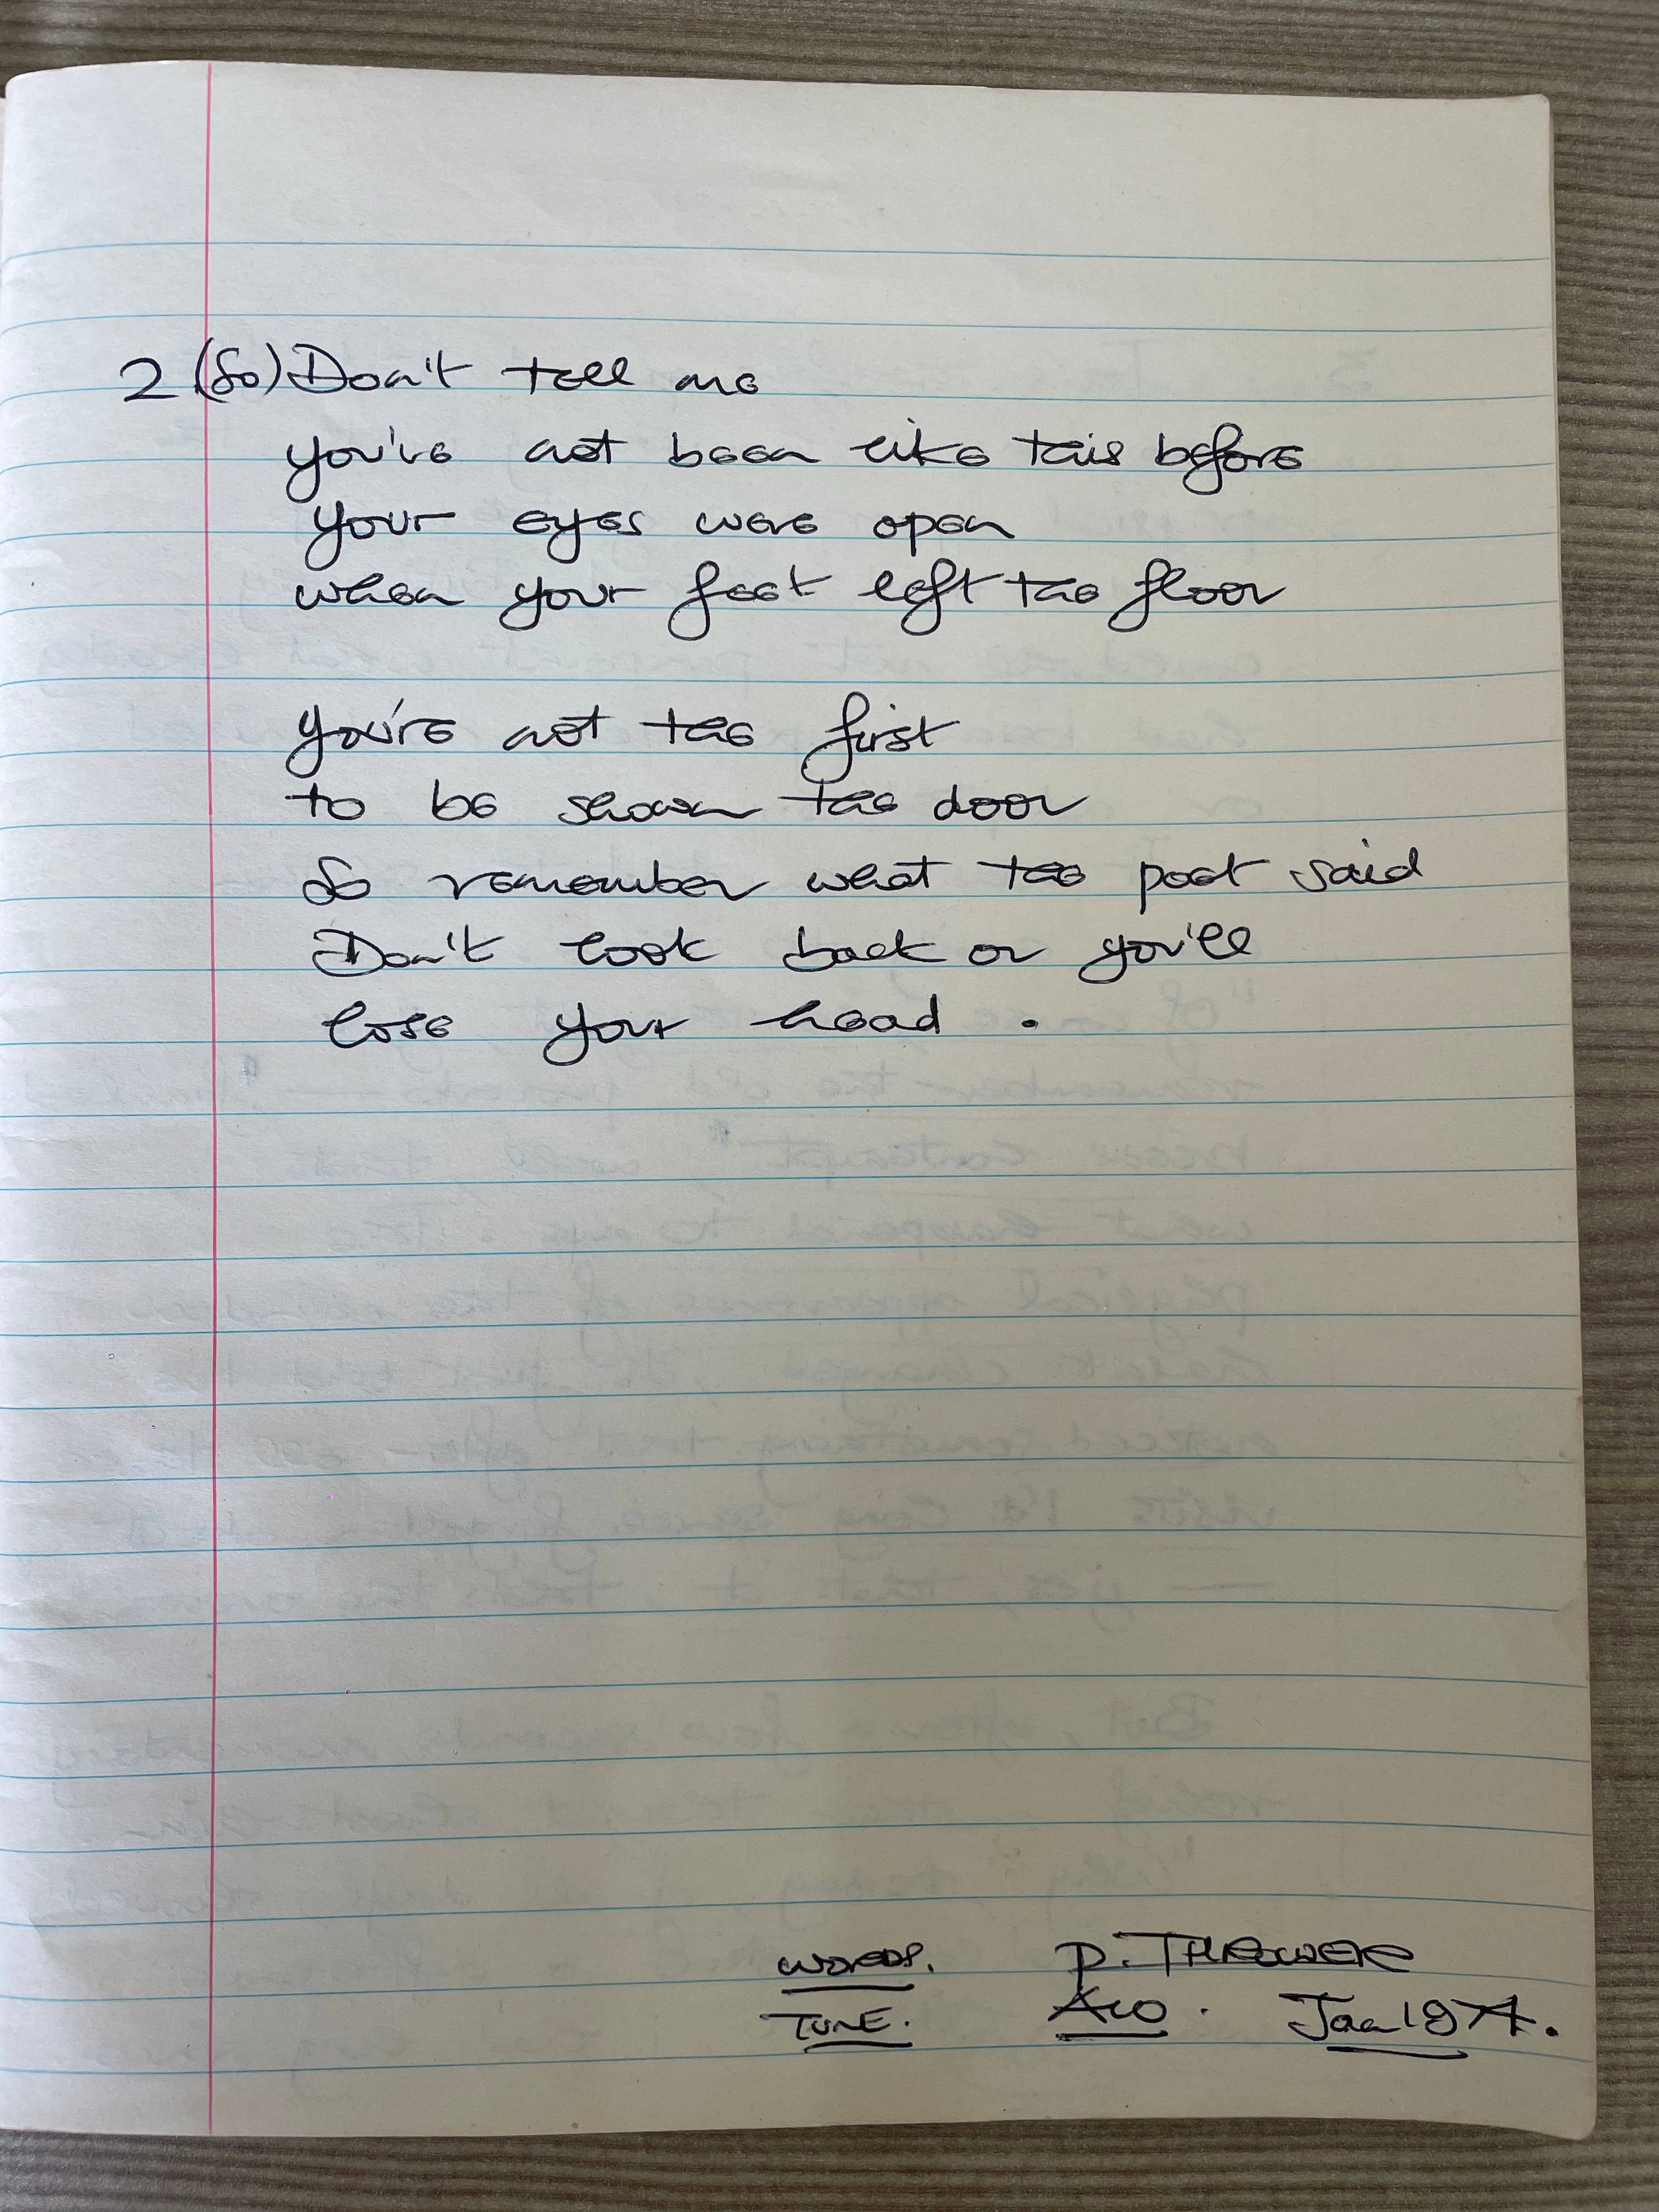 2 (So) Don't tell me
you've not been like this before
your eyes were open
when your feet left the floor
you're not the first
to be shown the door
So remember what the poet said
Don't look back or you'll
lose your head.
WORDS. D. THROWER
TUNE. Jan 1974.